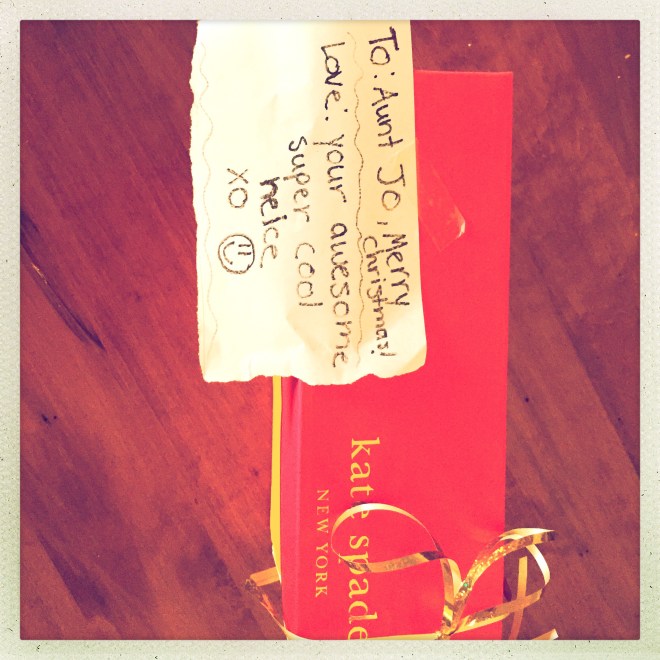 To: Aunt Jo, Merry
Christmas!
Love: your awesome
super cool
neice
xo
kate spade
NEW YORK